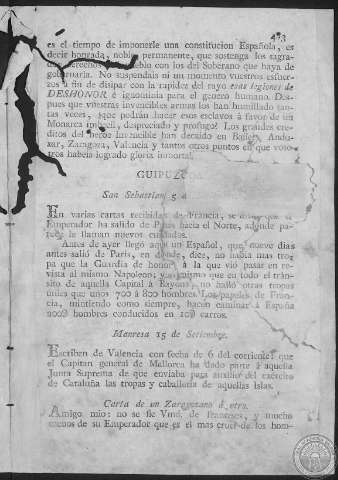 es el tiempo de imponerle una constitucion Española, es
decir honrada, noble, permanente, que sostenga los sagra-
dos derechos del Pueblo con los del Soberano que haya de
gobernarla. No suspendais ni un momento vuestros esfuer-
zos á fin de disipar con la rapidez del rayo esas legiones de
DESHONOR é ignominia para el genero humano. Des-
pues que vuestras invencibles armas los han humillado tan-
tas veces, ¿que podrán hacer esos esclavos á favor de un
Monarca imbecil, despreciado y profugo? Los grandes cre-
ditos del heroe Invencible han decaido en Baylen, Andu-
xar, Zaragoza, Valencia y tantos otros puntos en que voso-
tros habeis logrado gloria inmortal.
GUIPUZC
San Sebastian 5 d
En varias cartas recibidas de Francia, se dice que el
Emperador ha salido de Paris hacia el Norte, adonde pa-
rece le llaman nuevos cuidados.
Antes de ayer llegó aqui un Español, que nueve dias
antes salió de Paris, en donde, dice, no habia mas tro-
pa que la Guardia de honor, á la que vió pasar en re-
vista al mismo Napoleon; y asimismo que en todo el trán-
sito de aquella Capital á Bayona, no halló otras tropas
utiles que unos 700 á 800 hombres. Los papeles de Fran-
cia, mintiendo como siempre, hacen caminar á España
hombres conducidos en carros.
Manresa 15 de Setiembre.
Escriben de Valencia con fecha de 6 del corriente: que
el Capitan general de Mallorca ha dado parte á aquella
Junta Suprema de que enviaba para auxiliar del exército
de Cataluña las tropas y caballeria de aquellas Islas.
Carta de un Zaragozano á otro.
Amigo mio: no se fie Vmd. de franceses, y mucho
menos de su Emperador que es el mas cruel de los hom-